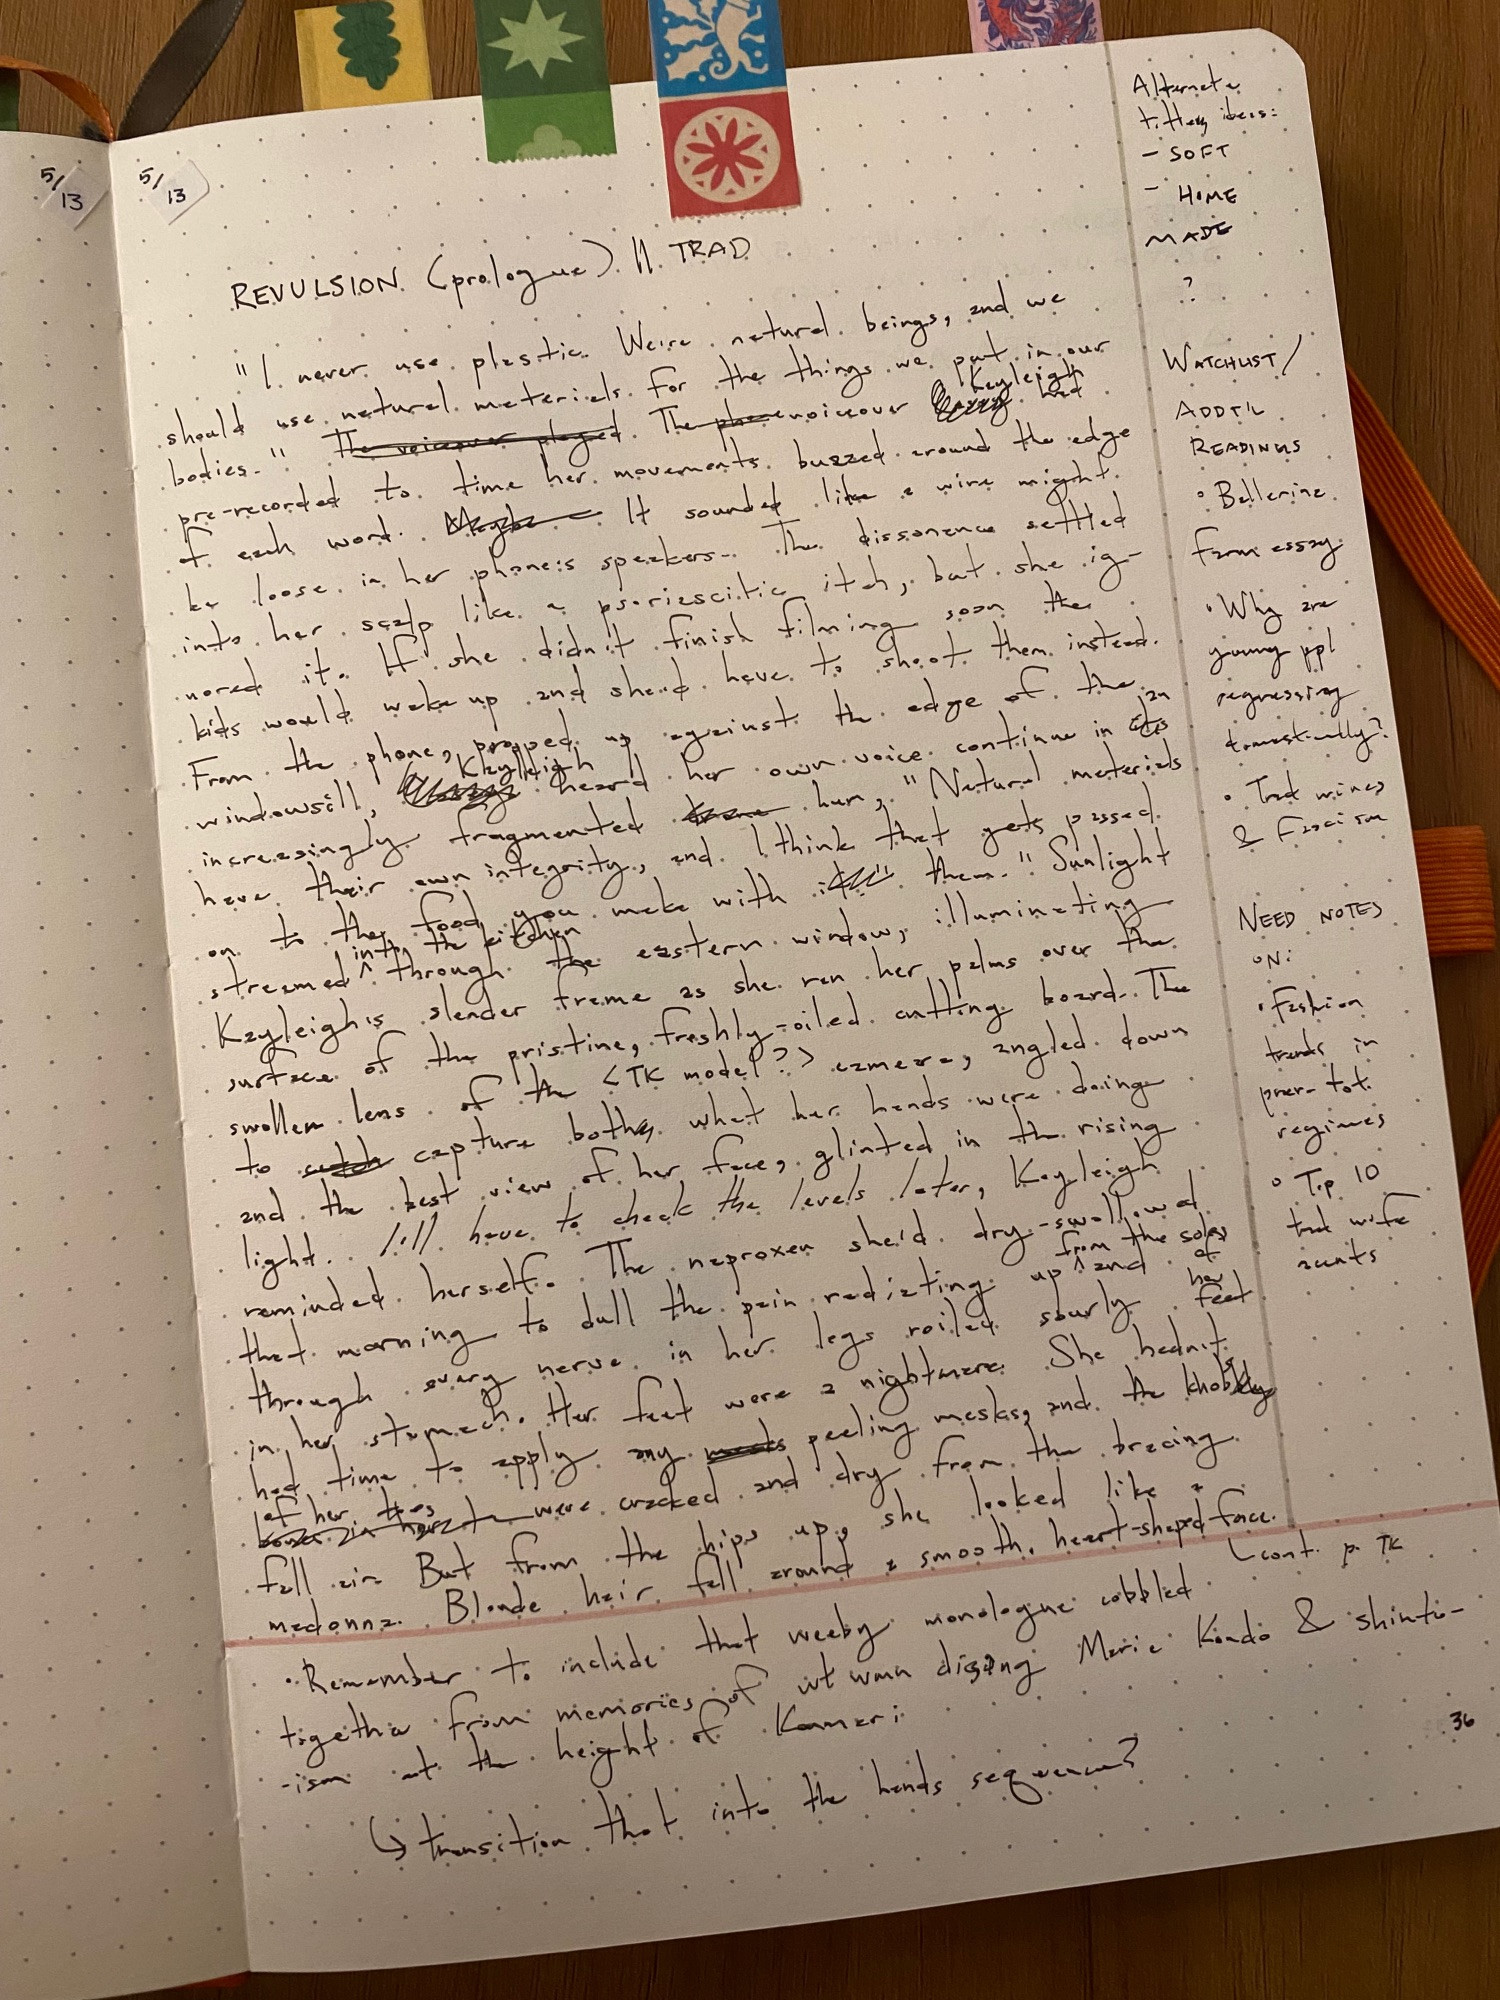 5/13
5/13
REVULSION (prologue) // TRAD
"I never use plastic. We're natural beings, and we
should use natural materials for the things we put in our
bodies." The voiceover played. The phone voiceover Kayleigh had
pre-recorded to time her movements buzzed around the edge
of each word. Maybe It sounded like a wire might
be loose in her phone's speakers. The dissonance settled
into her scalp like a psoriescitic itch, but she ig-
nored it. If she didn't finish filming soon the
kids would wake up and she'd have to shoot them instead.
From the phone, propped up against the edge of the
windowsill, Kayleigh heard her own voice continue in an
increasingly fragmented hum, "Natural materials
have their own integrity, and I think that gets passed
on to the food you make with them." Sunlight
streamed ^into the kitchen through the eastern window, illuminating
Kayleigh's slender frame as she ran her palms over the
surface of the pristine, freshly-oiled cutting board. The
swollen lens of the <TK model?> camera, angled down
to catch capture both what her hands were doing
and the best view of her face, glinted in the rising
light. I'll have to check the levels later, Kayleigh
reminded herself. The naproxen she'd dry-swallowed
that morning to dull the pain radiating up ^from the soles of her feet and
through every nerve in her legs roiled sourly
in her stomach. Her feet were a nightmare. She hadn't
had time to apply any masks peeling masks, and the knobs
of her toes were cracked and dry from the bracing
fall air. But from the hips up, she looked like a
madonna. Blonde hair fell around a smooth, heart-shaped face.
cont. p. TK
• Remember to include that weeby monologue cobbled
together from memories of wt wmn dissing Marie Kondo & shinto-
-ism at the height of Konmari
↳ transition that into the hands sequence?
36
Alternate
titles ideas:
- SOFT
- HOME
MADE
?
WATCHLIST/
ADDT'L
READINGS
• Ballerina
farm essay
• Why are
young ppl
regressing
domestically?
• Trad wives
& Fascism
NEED NOTES
ON:
• Fashion
trends in
prev. tot.
regimes
• Top 10
trad wife
accnts